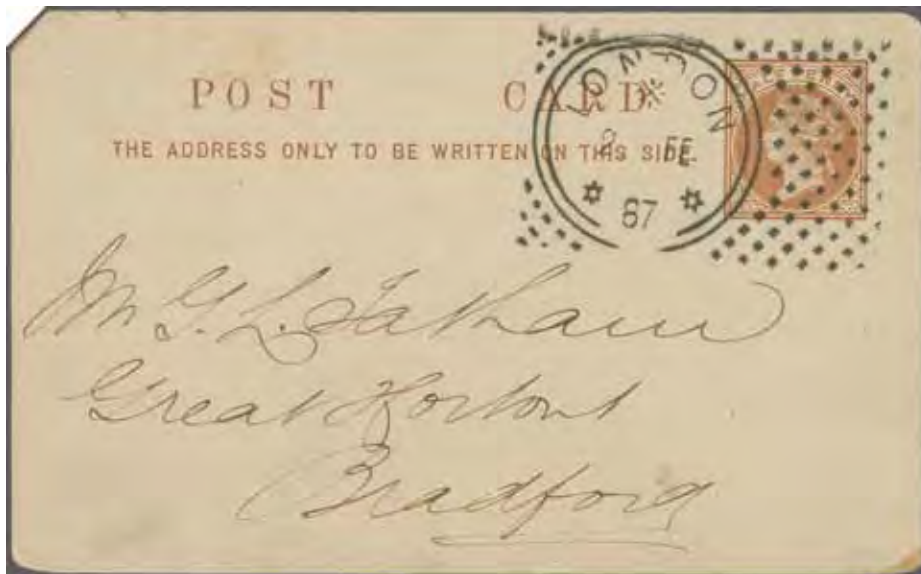 POST CARD
THE ADDRESS ONLY TO BE WRITTEN ON THIS SIDE.
LONDON
2 FE
87
Mr G. L. Tatham
Great Horton
Bradford